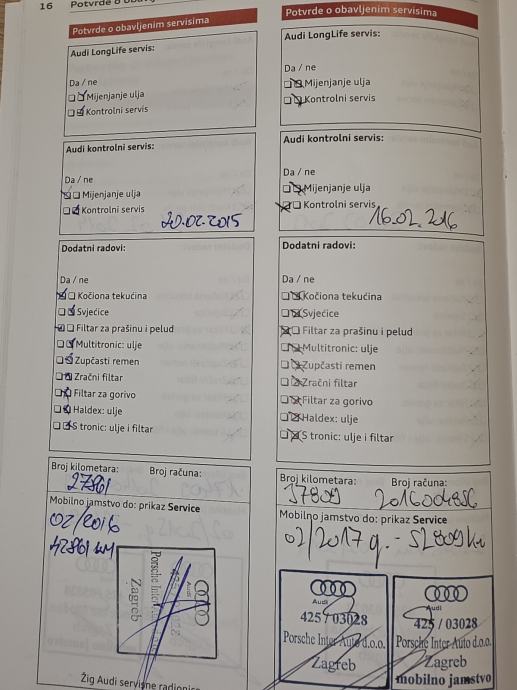 16
Potvrde o
Potvrde o obavljenim servisima
Audi LongLife servis:
Da / ne
Mijenjanje ulja
Kontrolni servis
Audi kontrolni servis:
Da / ne
Mijenjanje ulja
Kontrolni servis
20.02.2015
Dodatni radovi:
Da / ne
Kočiona tekućina
Svjećice
Filtar za prašinu i pelud
Multitronic: ulje
Zupčasti remen
Zračni filtar
Filtar za gorivo
Haldex: ulje
S tronic: ulje i filtar
Broj kilometara:
Broj računa:
27861
Mobilno jamstvo do: prikaz Service
02/2016
42861 km
Audi
Porsche Inter
Zagreb
Žig Audi servisne radionice
Potvrde o obavljenim servisima
Audi LongLife servis:
Da / ne
Mijenjanje ulja
Kontrolni servis
Audi kontrolni servis:
Da / ne
Mijenjanje ulja
Kontrolni servis
16.02.2016
Dodatni radovi:
Da / ne
Kočiona tekućina
Svjećice
Filtar za prašinu i pelud
Multitronic: ulje
Zupčasti remen
Zračni filtar
Filtar za gorivo
Haldex: ulje
S tronic: ulje i filtar
Broj kilometara:
Broj računa:
37809
Mobilno jamstvo do: prikaz Service
02/2017 g. - 52809 km
Audi
425 / 03028
Porsche Inter Auto d.o.o.
Zagreb
Audi
425 / 03028
Porsche Inter Auto d.o.o.
Zagreb
mobilno jamstvo